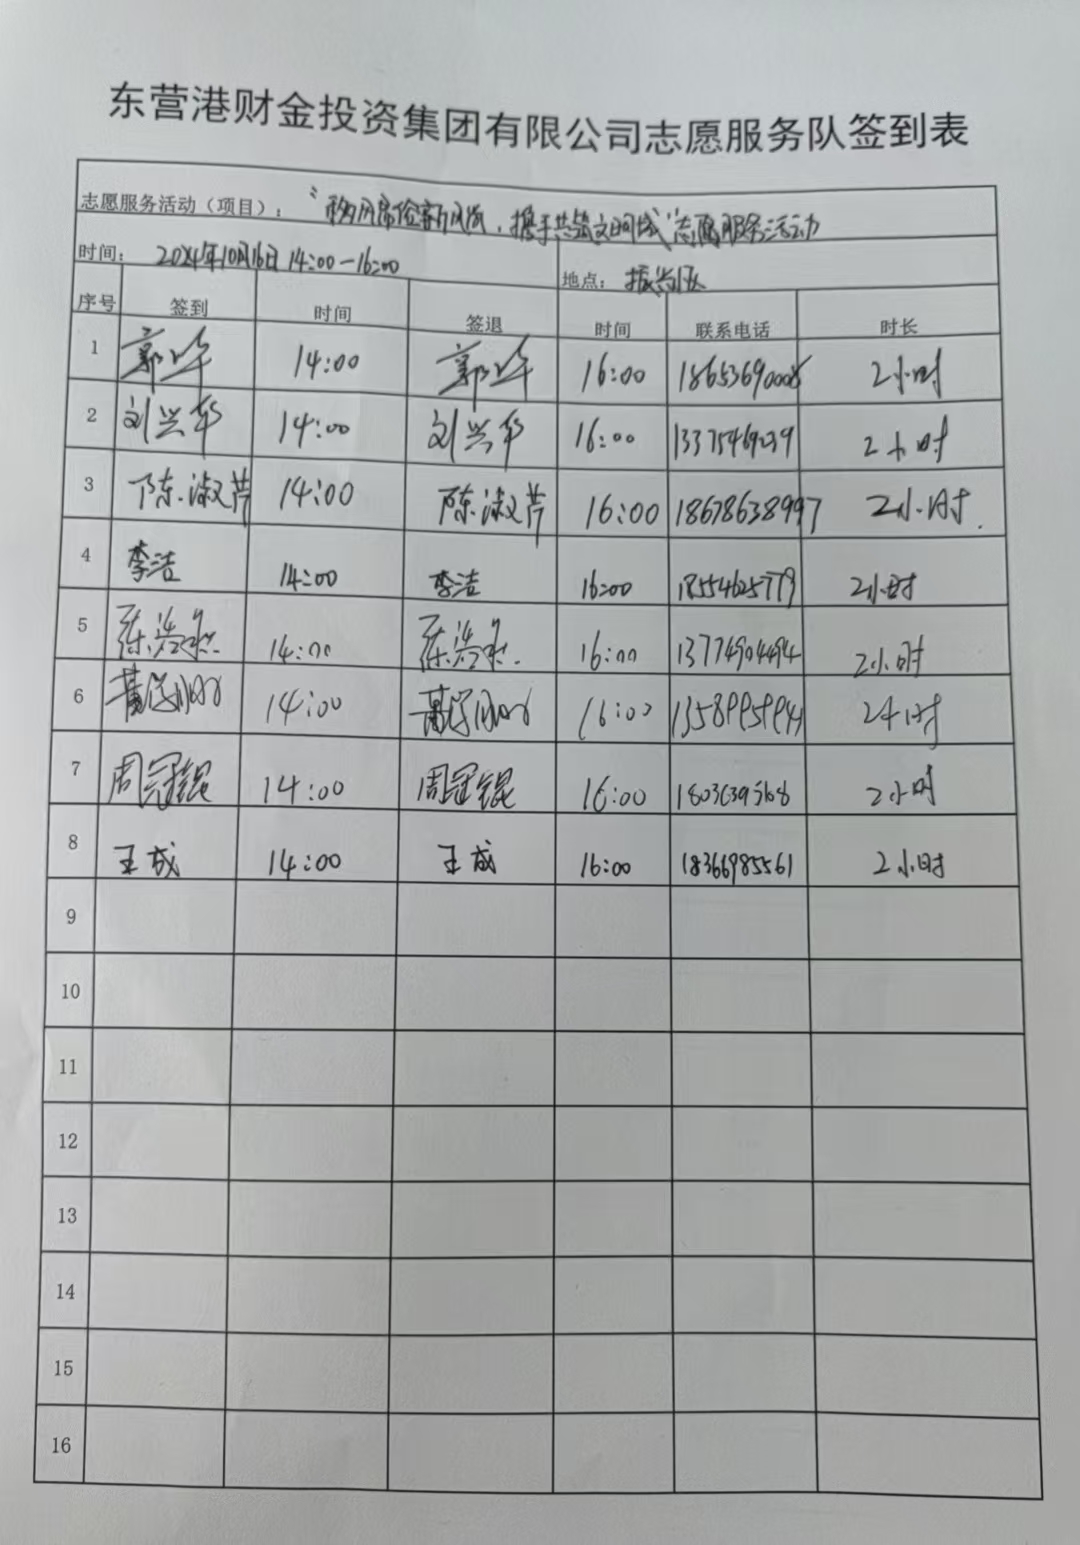 东营港财金投资集团有限公司志愿服务队签到表
志愿服务活动（项目）： “移风易俗新风尚，携手共筑文明城”志愿服务活动
时间： 2024年10月16日 14:00—16:00 地点： 振兴区
序号 签到 时间 签退 时间 联系电话 时长
1 郭华 14:00 郭华 16:00 18653690008 2小时
2 刘兴华 14:00 刘兴华 16:00 2小时
3 陈淑芹 14:00 陈淑芹 16:00 18678638997 2小时.
4 李洁 14:00 李洁 16:00 18554625779 2小时
5 14:00 16:00 13774904494 2小时
6 14:00 16:00 13589959941 2小时
7 周冠锟 14:00 周冠锟 16:00 2小时
8 王成 14:00 王成 16:00 18366985561 2小时
9
10
11
12
13
14
15
16